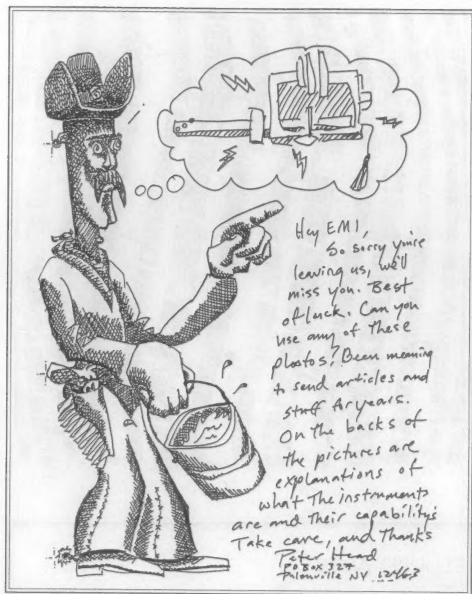 Hey EMI,
So sorry you're
leaving us, we'll
miss you. Best
of luck. Can you
use any of these
photos? Been meaning
to send articles and
stuff for years.
On the backs of
the pictures are
explanations of
what the instruments
are and their capability's
Take care, and Thanks
Peter Head
PO Box 324
Palenville NY 12463